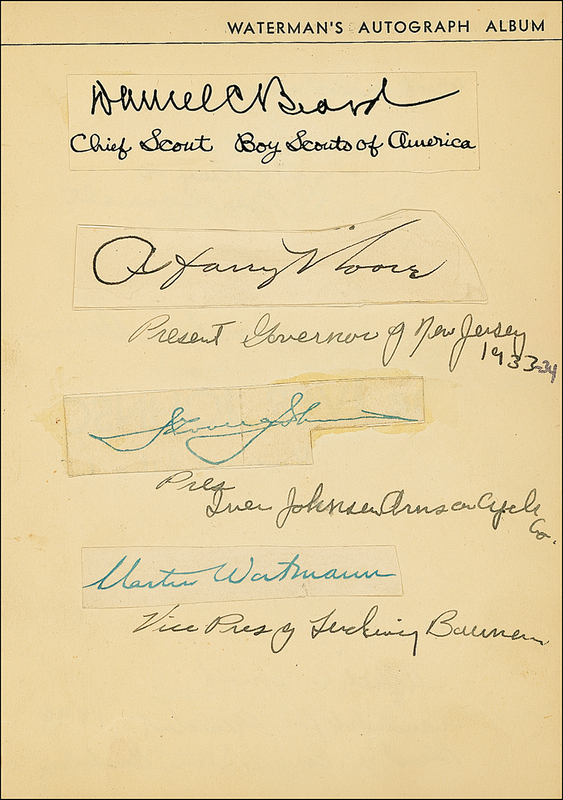 WATERMAN'S AUTOGRAPH ALBUM
Daniel C Beard
Chief Scout Boy Scouts of America
A Harry Moore
Present Governor of New Jersey
1933-34
Pres
Iver Johnson Arms Cycle
Co.
Martin Wortmann
Vice Pres of Ludwig Bauman